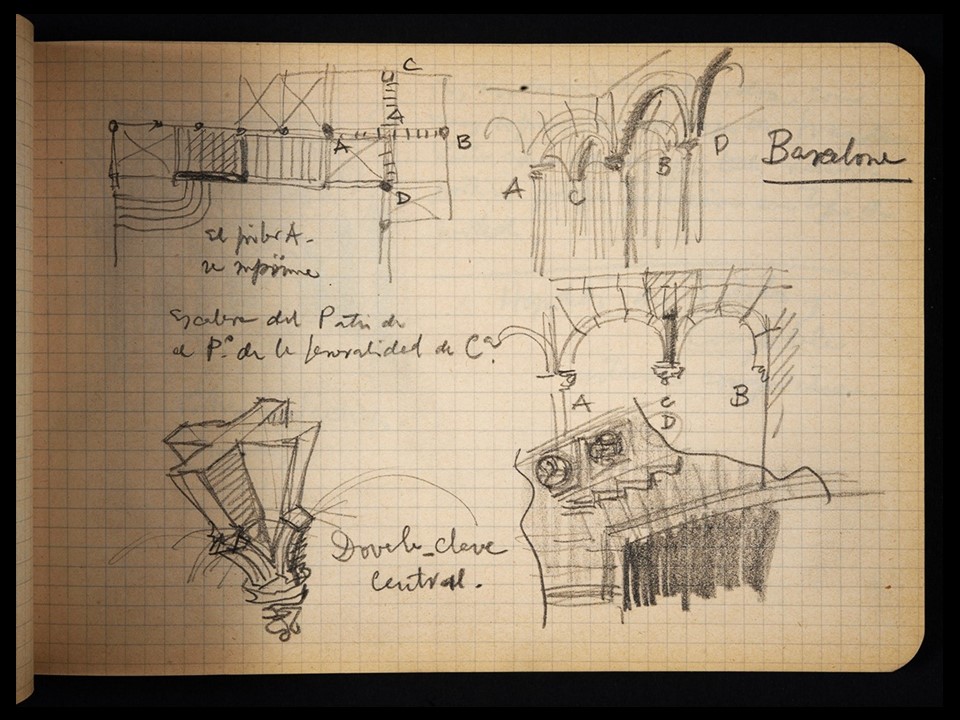 C
A
A
B
D
A
C
B
D
Barcelone
El pilar A.
se suprime
Escalera del Patio de
el P.º de la Generalidad de C.ª
A
C
D
B
Dovela-clave
central.